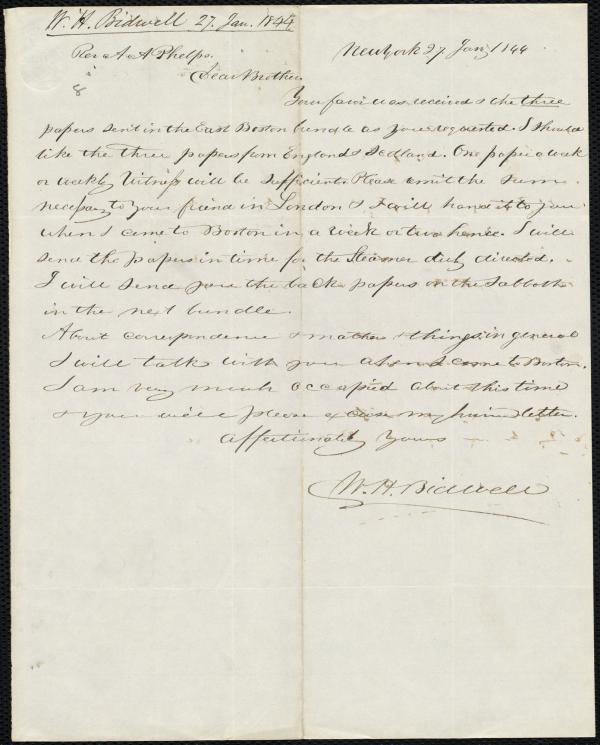 W. H. Bidwell 27. Jan. 1844
New York 27 Jany 1844
Rev A. A. Phelps.
8
Dear Brother
Your favor was received & the three
papers sent in the East Boston bundle as you requested. I should
like the three papers from England & Scotland. One paper a week
or weekly Witness will be sufficient. Please omit the sum
necessary to your friend in London & I will hand it to you
when I come to Boston in a week or two hence. I will
send the papers in time for the Steamer duly directed.
I will send you the back papers on the Sabbath
in the next bundle.
About correspondence & matters & things in general
I will talk with you when I come to Boston.
I am very much occupied about this time
& you will please excuse my hurried letter.
Affectionately Yours
W. H. Bidwell